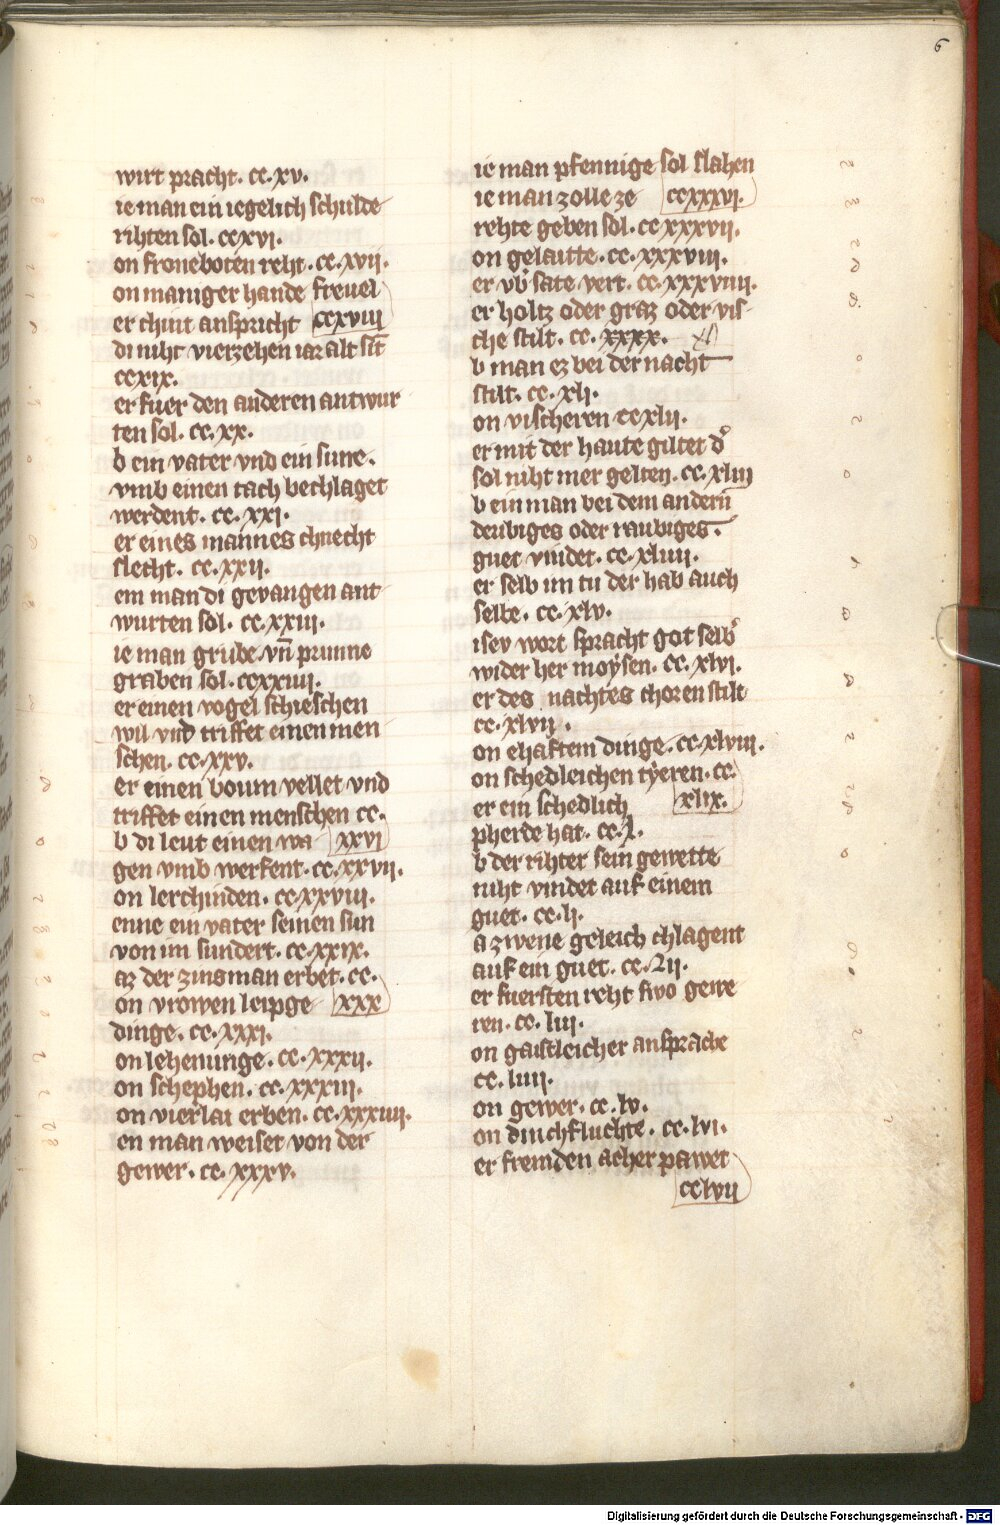 6
wirt pracht. cc. xv.
ie man ein iegelich schulde
rihten sol. ccxvi.
on froneboten reht. cc. xvii.
on maniger hande freuel
er chint anspricht ccxviii
di niht vierzehen iar alt sīt
ccxix.
er fuer den anderen antwur
ten sol. cc. xx.
b ein vater vnd ein sune.
vmb einen tach bechlaget
werdent. cc. xxi.
er eines mannes chnecht
slecht. cc. xxii.
em man di gevangen ant
wurten sol. cc. xxiii.
ie man grube. vn̄ prunne
graben sol. ccxxiiii.
er einen vogel schieschen
wil vnd triffet einen men
schen. cc. xxv.
er einen boum vellet vnd
triffet einen menschen cc.
b di leut einen wa xxvi
gen vmb werfent. cc. xxvii.
on lerchinden. ccxxviii.
enne ein vater seinen sun
von im sundert. cc. xxix.
az der zinsman erbet. cc.
on vrowen leipge xxx
dinge. cc. xxxi.
on lehenunge. cc. xxxii.
on schephen. cc. xxxiii.
on vierlai erben. cc. xxxiiii.
en man weiset von der
gewer. cc. xxxv.
ie man pfennige sol slahen
ie man zolle ze ccxxxvi.
rehte geben sol. ccxxxvii.
on gelaitte. cc. xxxviii.
er vb᷑ sate vert. cc. xxxviiii.
er holtz oder graz oder vis-
che stilt. cc. xxxx. xl
b man ez bei der nacht
stilt. cc. xli.
on vischeren ccxlii.
er mit der haute giltet d᷑
sol niht mer gelten. cc. xliii
b ein man bei dem anderū
deubiges oder raubiges.
guet vindet. cc. xliiii.
er selb im tu der hab auch
selbe. cc. xlv.
isev wort spracht got selb᷑
wider her moysen. cc. xlvi.
er des nachtes choren stilt
cc. xlvii.
on ehaftem dinge. cc. xlviii.
on schedleichen tÿeren. cc.
er ein schedlich xlix.
pherde hat. cc. l.
b der rihter sein gewette
niht vindet auf einem
guet. cc. li.
a zwene geleich chlagent
auf ein guet. cc. lii.
er fuersten reht swo gewe
ren. cc. liii.
on gaistleicher ansprache
cc. liiii.
on gewer. cc. lv.
on durchfluchte. cc. lvi.
er fremden acher pawet
cclvii
Digitalisierung gefördert durch die Deutsche Forschungsgemeinschaft - DFG